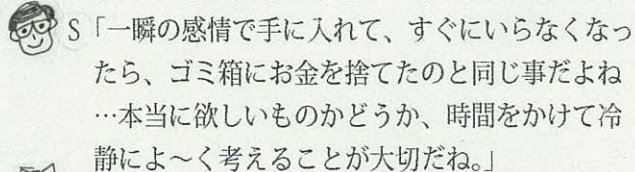 S「一瞬の感情で手に入れて、すぐにいらなくなっ
たら、ゴミ箱にお金を捨てたのと同じ事だよね
…本当に欲しいものかどうか、時間をかけて冷
静によ～く考えることが大切だね。」